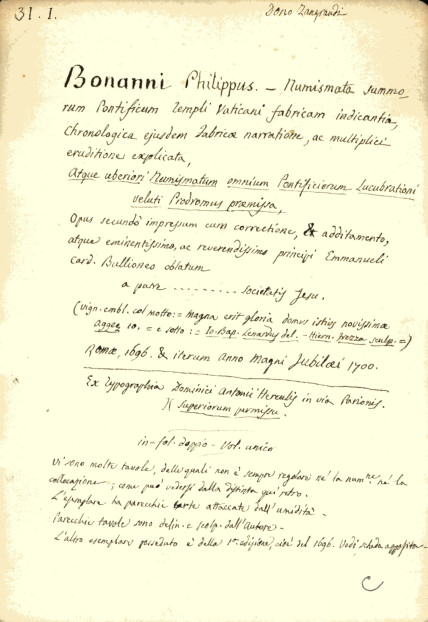 31. I.
Dono Zangrandi
Bonanni Philippus. _ Numismata summo-
rum Pontificum Templi Vaticani fabricam indicantia,
Chronologica ejusdem Fabricæ narratione, ac multiplici
eruditione explicata,
Atque uberiori Numismatum omnium Pontificiorum Lucubrationi
veluti Prodromus præmissa,
Opus secundò impressum cum correctione, & additamento,
atque eminentissimo, ac reverendissimo principi Emmanueli
card. Bullioneo oblatum
a patre .......... societatis Jesu.
(vign. embl. col motto: = Magna erit gloria domus istius novissimæ
Aggez 10. = e sotto: = Io. Bap. Lenardus del. - Hieron. Frezza sculp. =)
Romæ, 1696. & iterum Anno Magni Jubilæi 1700.
Ex Typographia Dominici Antonii Herculis in via Parionis.
)( Superiorum permissu.
in-fol. doppio - Vol. unico
Vi sono molte tavole, delle quali non è sempre regolare nè la num.ne nè la
collocazione; come può vedersi dalla distinta qui retro.
L'esemplare ha parecchie carte attaccate dall'umidità -
Parecchie tavole sono delin. e scolp. dall'Autore -
L'altro esemplare posseduto è della 1.a edizione, cioè del 1696. Vedi scheda apposita -